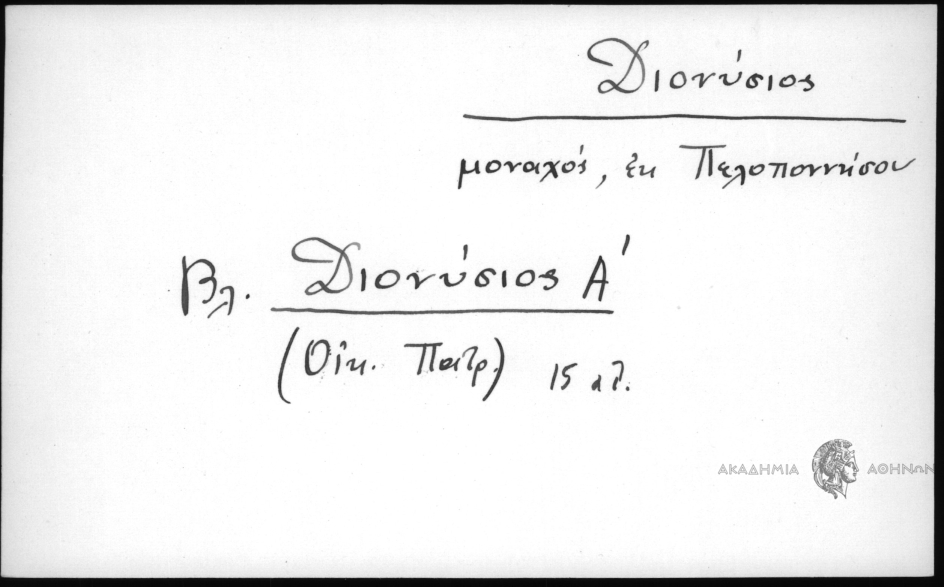 Διονύσιος
μοναχός, ἐκ Πελοποννήσου
Βλ. Διονύσιος Α'
(Οἰκ. Πατρ.) 15 αἰ.
ΑΚΑΔΗΜΙΑ ΑΘΗΝΩΝ